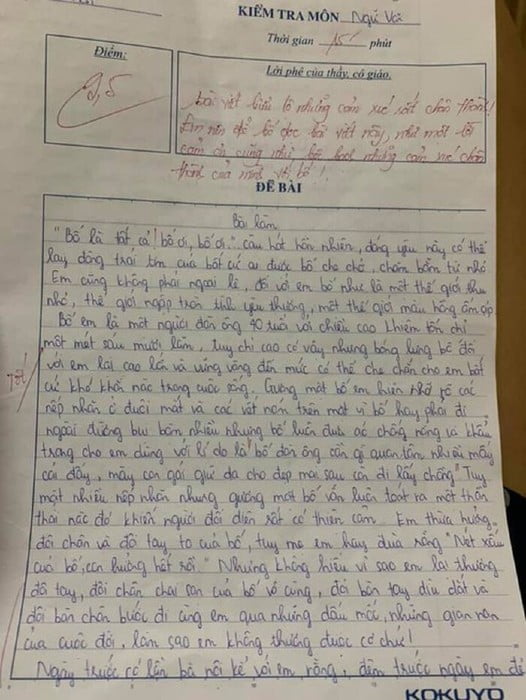 KIỂM TRA MÔN Ngữ Vă
Thời gian 15' phút
Điểm:
9,5
Lời phê của thầy, cô giáo.
bài viết biểu lộ những cảm xúc rất chân thành!
Em nên để bố đọc bài viết này, như một lời
cảm ơn cũng như bộc lộ những cảm xúc chân
thành của mình với bố!
ĐỀ BÀI
Bài làm
"Bố là tất cả! bố ơi, bố ơi..." câu hát hồn nhiên, đáng yêu này có thể
lay động trái tim của bất cứ ai được bố che chở, chăm bẵm từ nhỏ
Em cũng không phải ngoại lệ, đối với em bố như là một thế giới thu
nhỏ, thế giới ngập tràn tình yêu thương, một thế giới màu hồng ấm áp
Bố em là một người đàn ông 40 tuổi với chiều cao khiêm tốn chỉ
một mét sáu mươi lăm. Tuy chỉ cao có vậy nhưng bóng lưng bố đối
với em lại cao lớn và vững vàng đến mức có thể che chắn cho em bất
Tốt!
cứ khó khăn nào trong cuộc sống. Gương mặt bố em hiện nhớ rõ các
nếp nhăn ở đuôi mắt và các vết nám trên mặt vì bố hay phải đi
ngoài đường bụi bặm nhiều nhưng bố luôn đưa áo chống nắng và khẩu
trang cho em dùng với lí do là "bố đàn ông cần gì quan tâm nhiều mấy
cái đấy, mày con gái giữ da cho đẹp mai sau còn đi lấy chồng" Tuy
mặt nhiều nếp nhăn nhưng gương mặt bố vẫn luôn toát ra một thần
thái nào đó khiến người đối diện rất có thiện cảm. Em thừa hưởng
đôi chân và đôi tay to của bố, tuy mẹ em hay đùa rằng "Nét xấu
của bố, con hưởng hết rồi". Nhưng không hiểu vì sao em lại thương
đôi tay, đôi chân chai sạn của bố vô cùng, đôi bàn tay dìu dắt và
đôi bàn chân bước đi cùng em qua những dấu mốc, những gian nan
của cuộc đời, làm sao em không thương được cơ chứ!
Ngày trước có lần bà nội kể với em rằng: đêm trước ngày em đẻ
KOKUYO